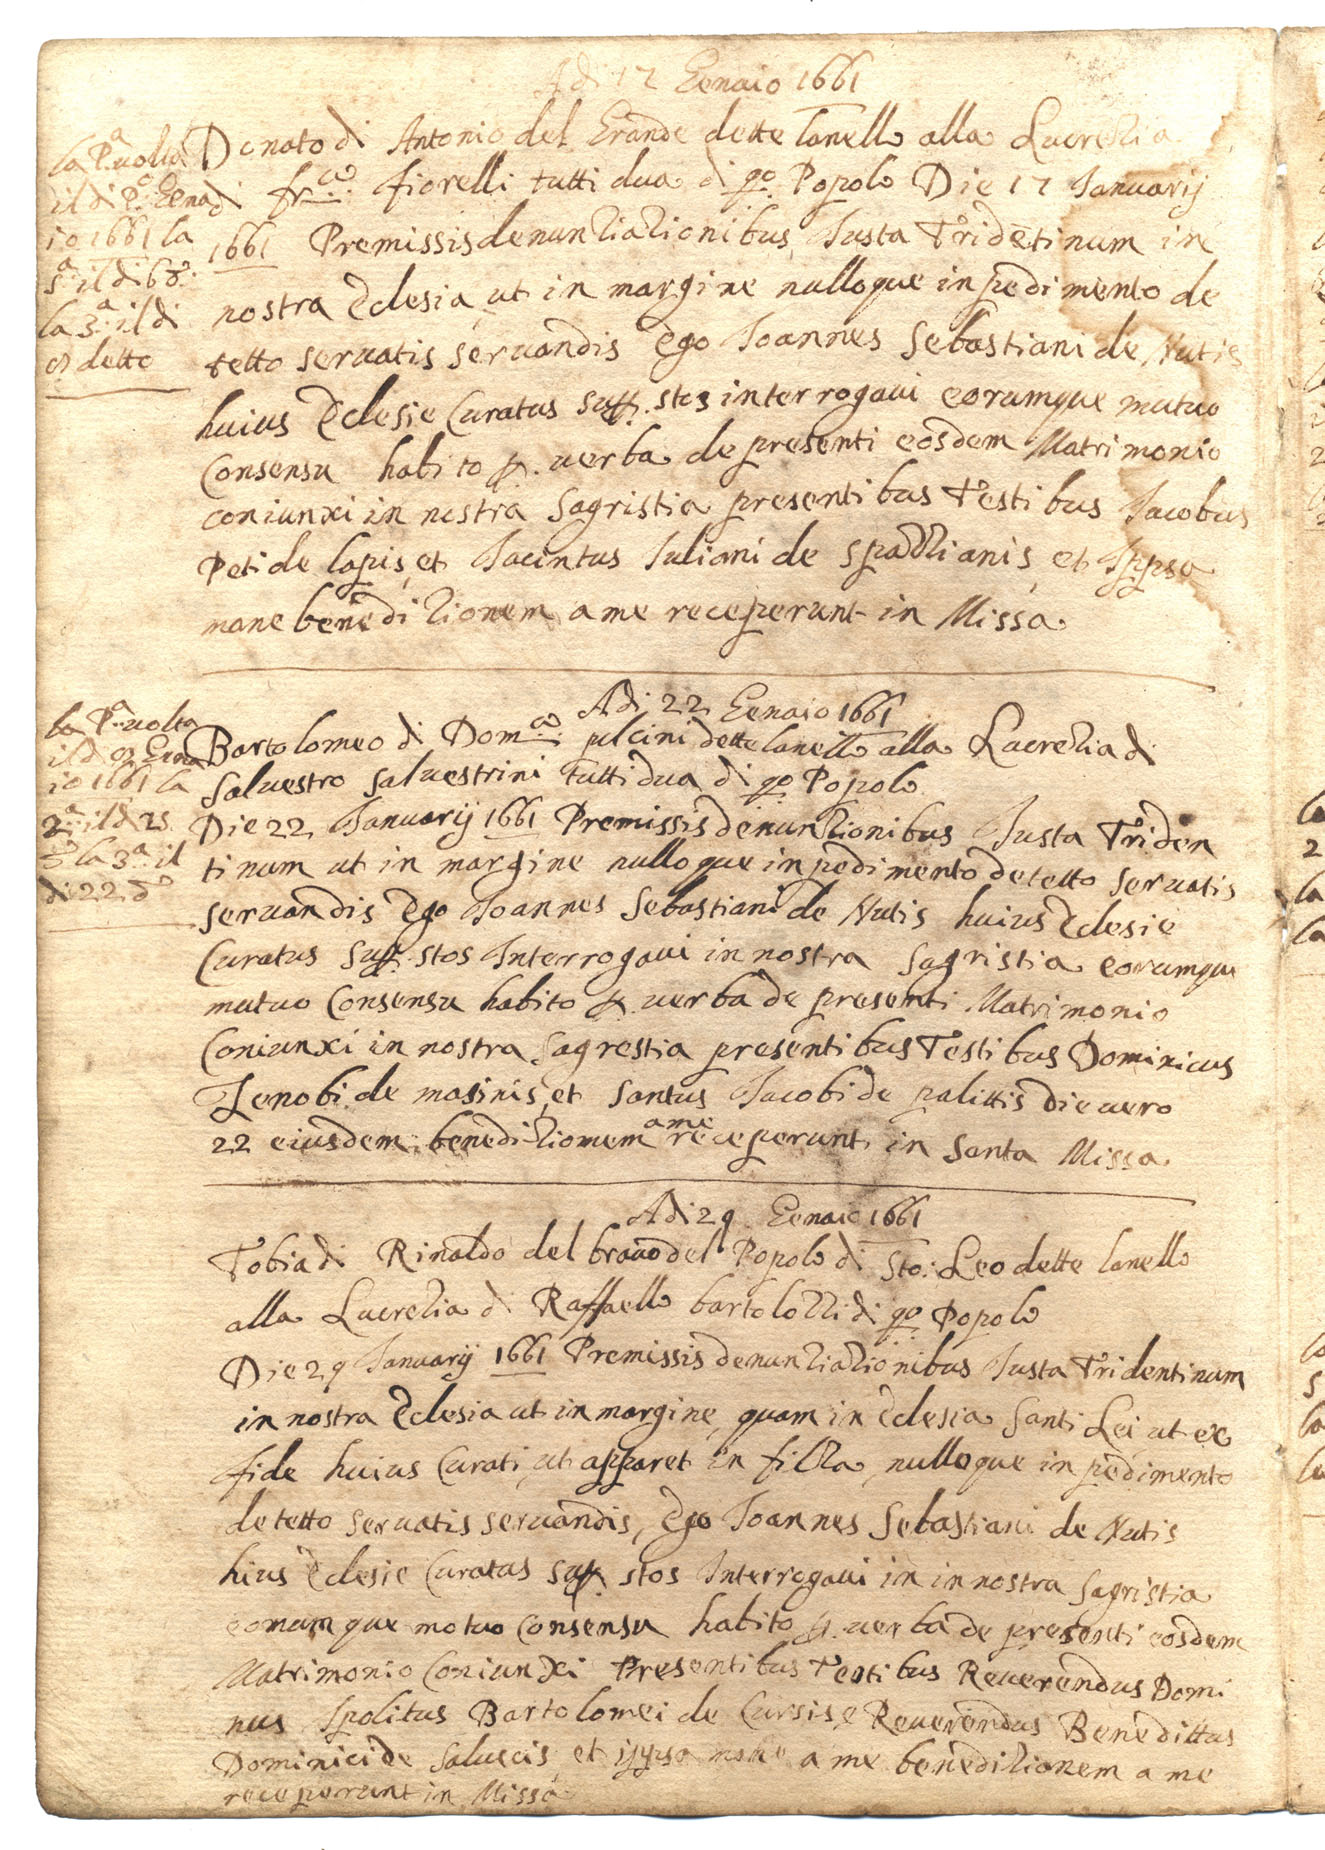 Adi 17 Genaio 1661
la Pª uolta
il di pº Gena
io 1661 la
sª il di 6 dº.
la 3ª il di
9 detto
Donato di Antonio del Grande dette lanello alla Lucretia
di frco. fiorelli tutti dua di qo. Popolo Die 17 Januarij
1661 Premissis denuntiationibus Justa Tridetinum in
nostra Eclesia ut in margine nulloque inpedimento de
tetto seruatis seruandis Ego Joannes Sebastiani de Nutis
huius Eclesie Curatus supp. stos interrogaui eorumque mutuo
Consensu habito p. uerba de presenti eosdem Matrimonio
coniunxi in nostra Sagristia presentibus Testibus Jacobus
Peti de lapis, et Jacintus Juliani de spazzianis, et Ippso
mane beneditionem a me receperunt in Missa.
Adi 22 Genaio 1661
la Pª uolta
il di 9 Gena
io 1661 la
2ª il di 25
dº la 3ª il
di 22 dº
Bartolomeo di Domco. pulcini dette lanello alla Lucretia di
Saluestro saluestrini tutti dua di qo. Popolo.
Die 22 Januarij 1661 Premissis denuntionibus Justa Triden
tinum ut in margine nulloque inpedimento detetto seruatis
seruandis Ego Joannes Sebastiani de Nutis huius Eclesie
Curatus supp. stos Interrogaui in nostra Sagristia eorumque
mutuo Consensu habito p. uerba de presenti Matrimonio
Coniunxi in nostra Sagrestia presentibus Testibus Dominicus
Zenobi de masinis, et Santus Jacobi de palittis die uero
22 eiusdem beneditiomem a me receperunt in Santa Missa.
Adi 29 Genaio 1661
Tobia di Rinaldo del brauo del Popolo di Sto: Leo dette lanello
alla Lucretia di Raffaello bartolozzi di qo. Popolo
Die 29 Januarij 1661 Premissis denuntiationibus Justa Tridentinum
in nostra Eclesia ut in margine, quam in Eclesia Santi Lei ut ex
fide huius Curati, ut apparet in filza, nulloque inpedimento
detetto seruatis seruandis, Ego Joannes Sebastiani de Nutis
hius Eclesie Curatus supp. stos Interrogaui in in nostra Sagristia
eorumque motuo Consensu habito p. uerba de presenti eosdem
Matrimonio Coniunxi Presentibus Testibus Reuerendus Domi
nus Ipolitus Bartolomei de Cursis, e Reuerendus Benedittus
Dominici de Saluccis, et ippso mane a me beneditionem a me
receperunt in Missa